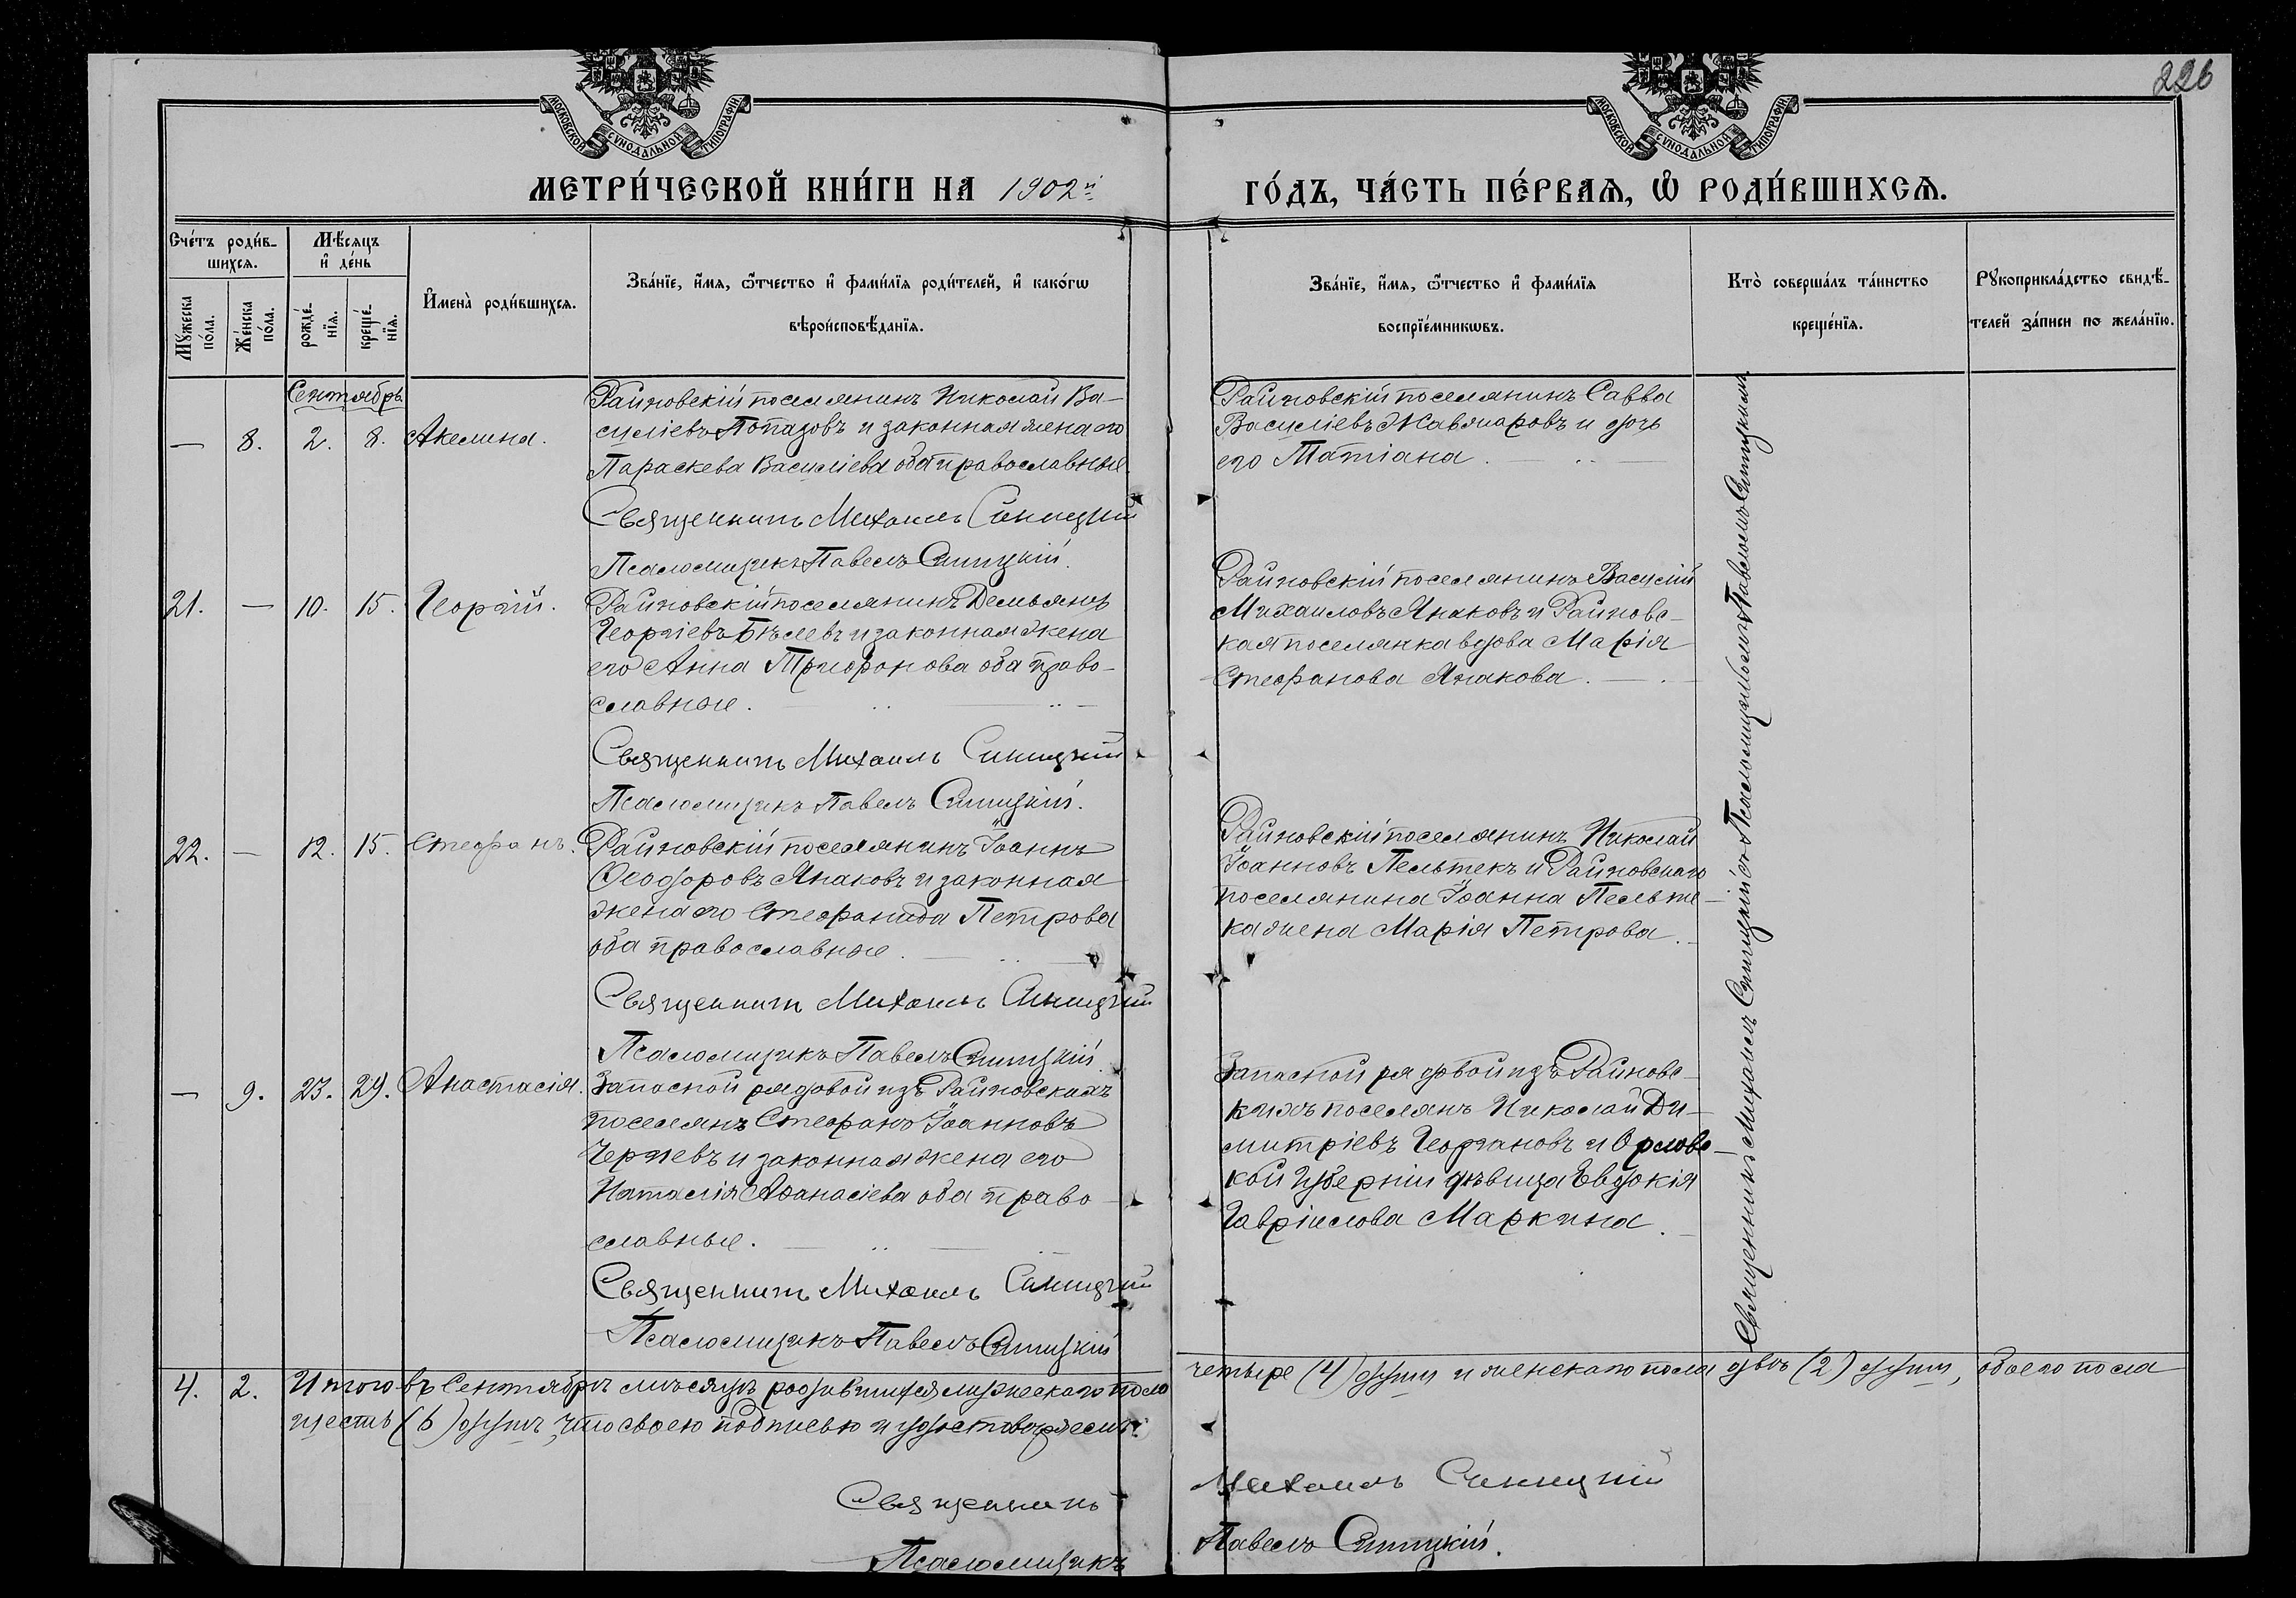 226
МОСКОВСКОЙ СѴНОДАЛЬНОЙ ТИПОГРАФІИ
МОСКОВСКОЙ СѴНОДАЛЬНОЙ ТИПОГРАФІИ
МЕТРИ́ЧЕСКОЙ КНИ́ГИ НА 1902й
ГО́ДЪ, ЧА́СТЬ ПЕ́РВАѦ, Ѿ РОДИ́ВШИХСѦ.
Сче́тъ роди́в-
шихсѧ.
Мѣ́сѧцъ
и҆ де́нь
Мꙋ́жеска по́ла.
Же́нска по́ла.
рожде́-
нїѧ.
креще́-
нїѧ.
И҆мена̀ роди́вшихсѧ.
Зва́нїе, и҆́мѧ, ѻ҆́тчество и҆ фами́лїѧ роди́телей, и҆ како́гѡ
вѣроисповѣ́данїѧ.
Зва́нїе, и҆́мѧ, ѻ҆́тчество и҆ фами́лїѧ
воспрїе́мникѡвъ.
Кто̀ соверша́лъ та́инство
креще́нїѧ.
Рꙋкоприкла́дство свидѣ́-
телей за́писи по жела́нїю.
Сентябрь
— 8. 2. 8. Акелина.
Райновскій поселянинъ Николай Ва-
силіевъ Потазовъ и законная жена его
Параскева Василіева оба православные
Священникъ Михаилъ Синицкий
Псаломщикъ Павелъ Синицкій.
Райновскій поселянинъ Савва
Василіевъ Жавжаровъ и дочь
его Татіана.
21. — 10. 15. Георгій.
Райновскій поселянинъ Демьянъ
Георгіевъ Бѣлевъ и законная жена
его Анна Трифонова оба право-
славные.
Священникъ Михаилъ Синицкий
Псаломщикъ Павелъ Синицкій.
Райновскій поселянинъ Василій
Михаиловъ Янаковъ и Райновс-
кая поселянка вдова Марія
Стефанова Янакова.
22. — 12. 15. Стефанъ.
Райновскій поселянинъ Іоаннъ
Ѳеодоровъ Янаковъ и законная
жена его Стефанида Петрова
оба православные.
Священникъ Михаилъ Синицкий
Псаломщикъ Павелъ Синицкій.
Райновскій поселянинъ Николай
Іоанновъ Пельтекъ и Райновскаго
поселянина Іоанна Пельте-
ка жена Марія Петрова.
— 9. 23. 29. Анастасія.
Запасной рядовой изъ Райновскихъ
поселянъ Стефанъ Іоанновъ
Чергевъ и законная жена его
Наталія Аѳанасіева оба право-
славные.
Священникъ Михаилъ Синицкий
Псаломщикъ Павелъ Синицкій
Запасной рядовой изъ Райновс-
кихъ поселянъ Николай Ди-
митріевъ Георгановъ и Орловс-
кой губерніи дѣвица Евдокія
Гавріилова Маркина.
Священникъ Михаилъ Синицкій съ Псаломщикомъ Павломъ Синицкимъ
4. 2. Итого въ Сентябрѣ мѣсяцѣ родившихся мужескаго пола четыре (4) души и женскаго пола двѣ (2) души, обоего пола
шесть (6) душъ, что своею подписью и удостовѣряемъ:
Священникъ Михаилъ Синицкий
Псаломщикъ Павелъ Синицкій.